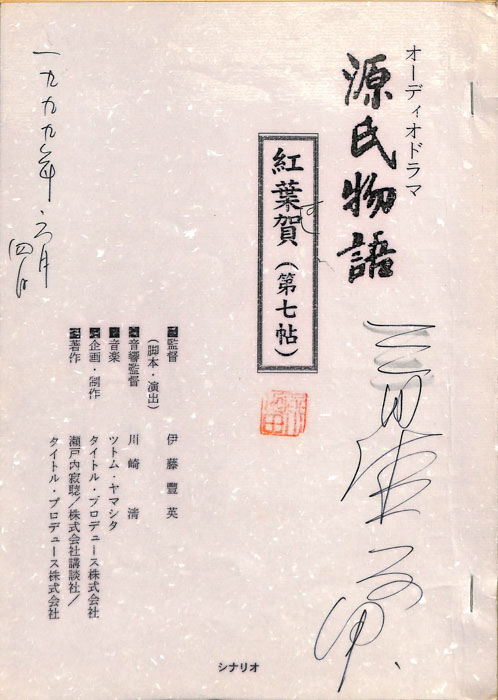 オーディオドラマ
源氏物語
紅葉賀（第七帖）
監督
（脚本・演出）
伊藤豊英
音響監督
川崎清
音楽
ツトム・ヤマシタ
企画・制作
タイトル・プロデュース株式会社
著作
瀬戸内寂聴／株式会社講談社／
タイトル・プロデュース株式会社
一九九九年 六月
四日
シナリオ